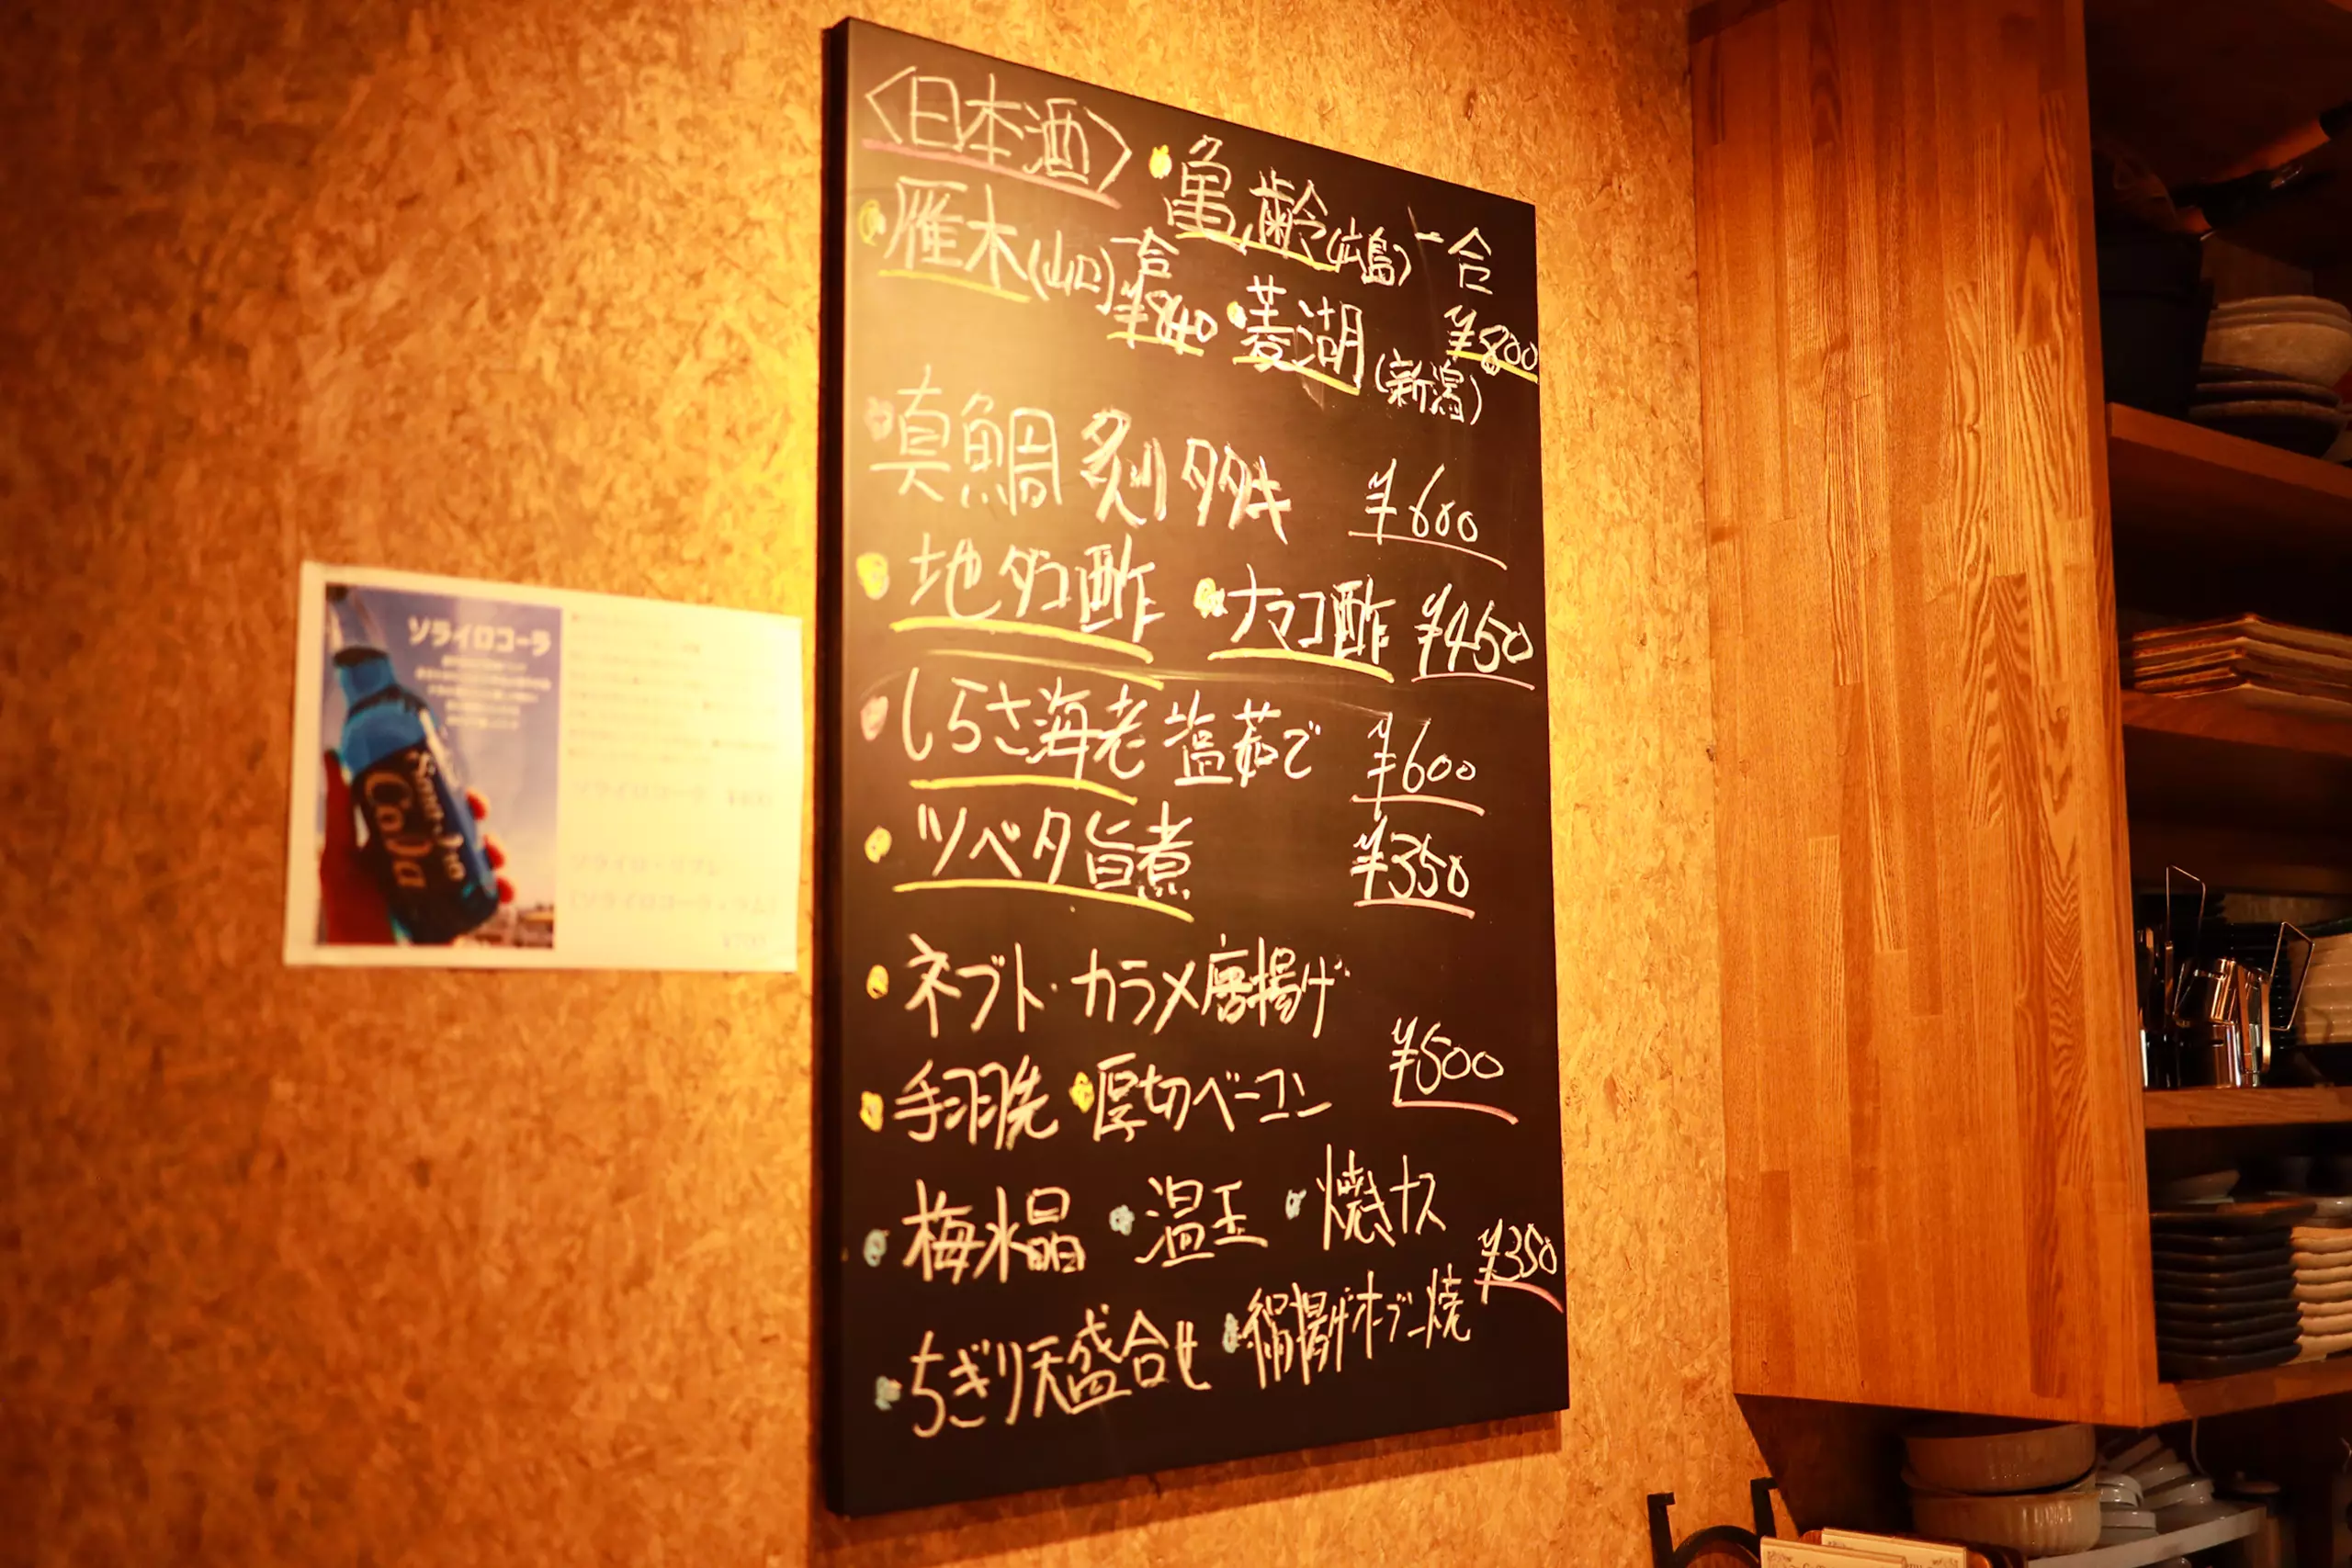 〈日本酒〉
・亀齢(広島)一合
¥800
・雁木(山口)一合
¥840
・菱湖
(新潟)
・真鯛
¥600
・地ダコ酢 ・ナマコ酢 ¥450
・しらさ海老 塩茹で ¥600
・ツベタ旨煮 ¥350
・ネブト・カラメ唐揚げ
・手羽先 ・厚切ベーコン ¥500
・梅水晶 ・温玉 ・焼きナス
¥350
・ちぎり天盛合せ ・絹揚げオーブン焼
ソライロコーラ
Cola
ソライロコーラ